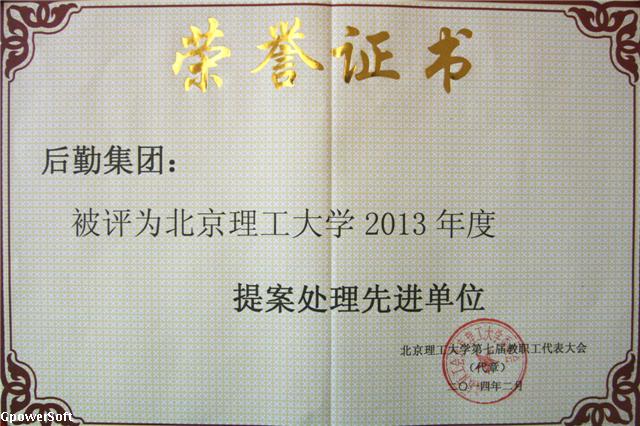 荣誉证书
后勤集团：
被评为北京理工大学 2013 年度
提案处理先进单位
北京理工大学第七届教职工代表大会
（代章）
二〇一四年二月
GpowerSoft